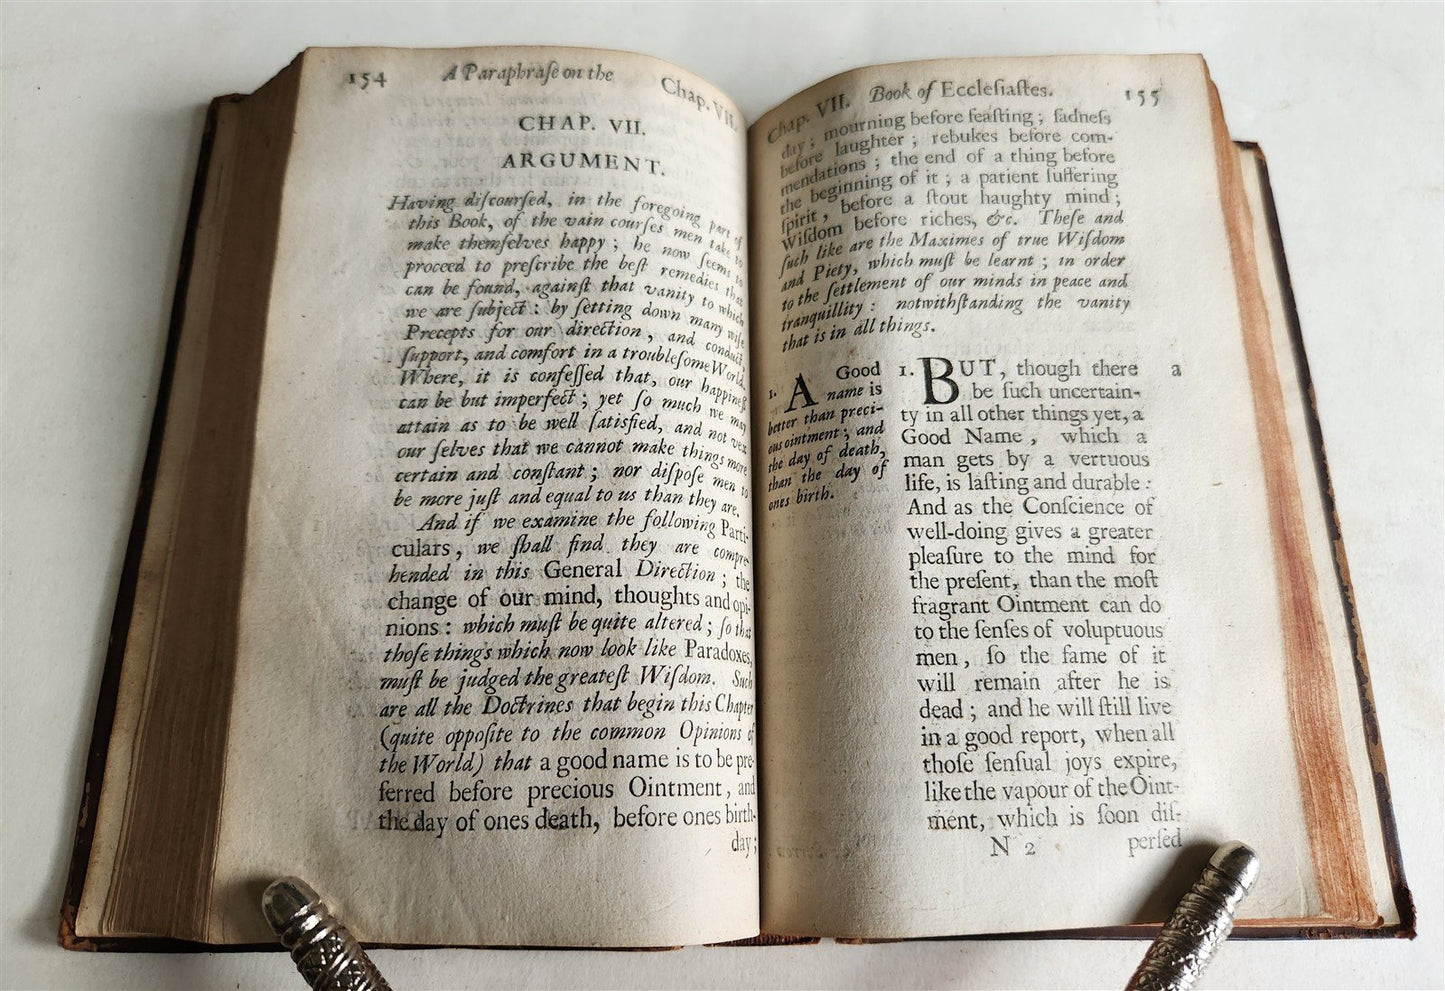 154 A Paraphraſe on the Chap. VII.
CHAP. VII.
ARGUMENT.
Having diſcourſed, in the foregoing part of
this Book, of the vain courſes men take to
make themſelves happy ; he now ſeems to
proceed to preſcribe the beſt remedies that
can be found, againſt that vanity to which
we are ſubject : by ſetting down many wiſe
Precepts for our direction, and conduct,
ſupport, and comfort in a troubleſome World.
Where, it is confeſſed that, our happineſs
can be but imperfect ; yet ſo much we may
attain as to be well ſatisfied, and not vex
our ſelves that we cannot make things more
certain and conſtant ; nor diſpoſe men to
be more juſt and equal to us than they are.
And if we examine the following Parti-
culars, we ſhall find they are compre-
hended in this General Direction ; the
change of our mind, thoughts and opi-
nions : which muſt be quite altered ; ſo that
thoſe things which now look like Paradoxes,
muſt be judged the greateſt Wiſdom. Such
are all the Doctrines that begin this Chapter
(quite oppoſite to the common Opinions of
the World) that a good name is to be pre-
ferred before precious Ointment, and
the day of ones death, before ones birth-
day ;
Chap. VII. Book of Eccleſiaſtes. 155
day ; mourning before feaſting ; ſadneſs
before laughter ; rebukes before com-
mendations ; the end of a thing before
the beginning of it ; a patient ſuffering
ſpirit, before a ſtout haughty mind ;
Wiſdom before riches, &c. Theſe and
ſuch like are the Maximes of true Wiſdom
and Piety, which muſt be learnt ; in order
to the ſettlement of our minds in peace and
tranquillity : notwithſtanding the vanity
that is in all things.
1. A Good
name is
better than preci-
ous ointment ; and
the day of death,
than the day of
ones birth.
1. BUT, though there a
be ſuch uncertain-
ty in all other things yet, a
Good Name, which a
man gets by a vertuous
life, is laſting and durable :
And as the Conſcience of
well-doing gives a greater
pleaſure to the mind for
the preſent, than the moſt
fragrant Ointment can do
to the ſenſes of voluptuous
men, ſo the fame of it
will remain after he is
dead ; and he will ſtill live
in a good report, when all
thoſe ſenſual joys expire,
like the vapour of the Oint-
ment, which is ſoon diſ-
N 2 perſed